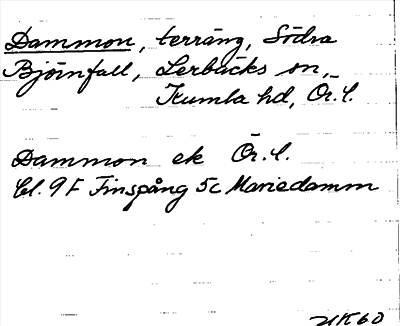 Dammon, terräng, Södra
Björnfall, Lerbäcks sn,
Kumla hd, Ör. l.
Dammon ek Ör. l.
bl. 9 F Finspång 5c Mariedamm
UK60